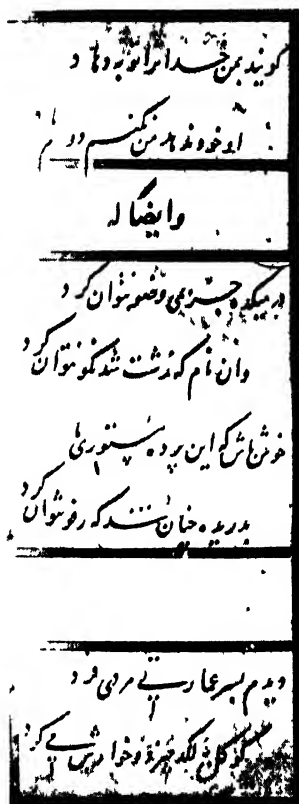 گویند بمن خدا ترا توبه دهاد
او خود ندهد من نکنم دو
وایضا له
در میکده جز بمی وضو نتوان کرد
وان نام که زشت شد نکو نتوان کرد
خوش باش که این پرده مستوری ما
بدریده چنان شد که رفو نتوان کرد
دیدم بسر عمارتی مردی فرد
کو گل بلگد میزد و خوارش می کرد